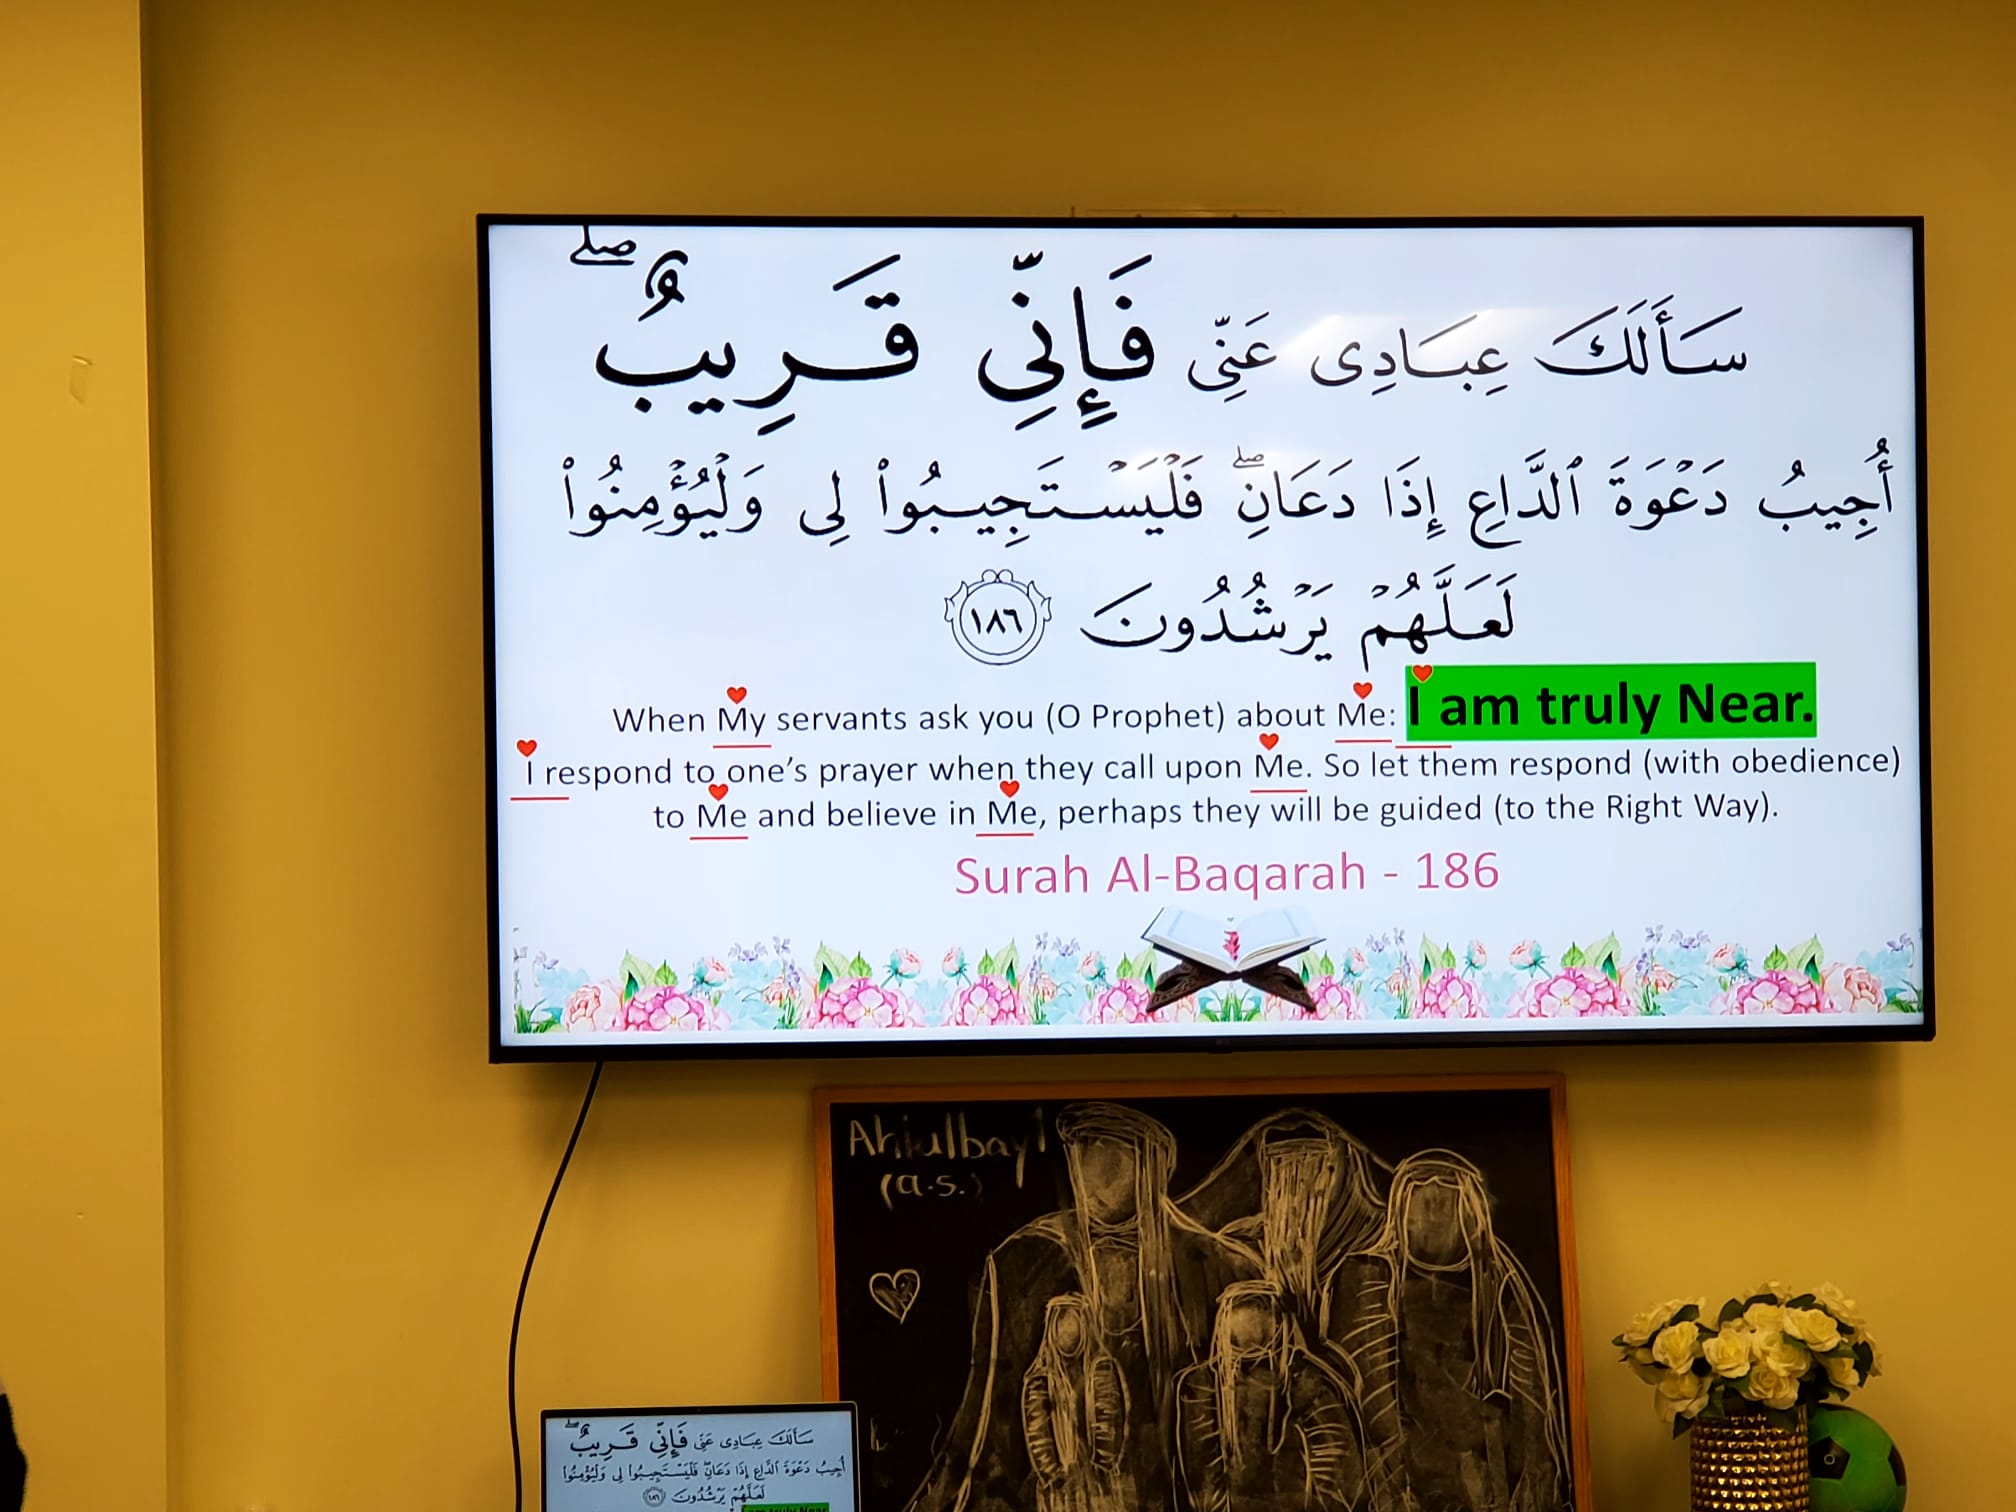 سَأَلَكَ عِبَادِى عَنِّى فَإِنِّى قَرِيبٌ ۖ
أُجِيبُ دَعْوَةَ ٱلدَّاعِ إِذَا دَعَانِ ۖ فَلْيَسْتَجِيبُوا۟ لِى وَلْيُؤْمِنُوا۟
لَعَلَّهُمْ يَرْشُدُونَ ١٨٦
When My servants ask you (O Prophet) about Me: I am truly Near.
I respond to one's prayer when they call upon Me. So let them respond (with obedience)
to Me and believe in Me, perhaps they will be guided (to the Right Way).
Surah Al-Baqarah - 186
Ahlulbayt
(a.s.)
سَأَلَكَ عِبَادِى عَنِّى فَإِنِّى قَرِيبٌ ۖ
أُجِيبُ دَعْوَةَ ٱلدَّاعِ إِذَا دَعَانِ ۖ فَلْيَسْتَجِيبُوا۟ لِى وَلْيُؤْمِنُوا۟
لَعَلَّهُمْ يَرْشُدُونَ ١٨٦
I am truly Near.